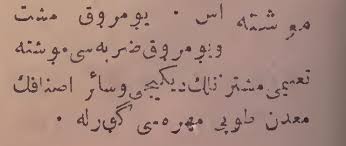 موشته اس · یومروق مشت
ویومروق ضربه‌سی موشته
تعمیمی مشتر نلك دیكیجی وسائر اصنافك
معدن طوپی مهره‌سی گورله ·